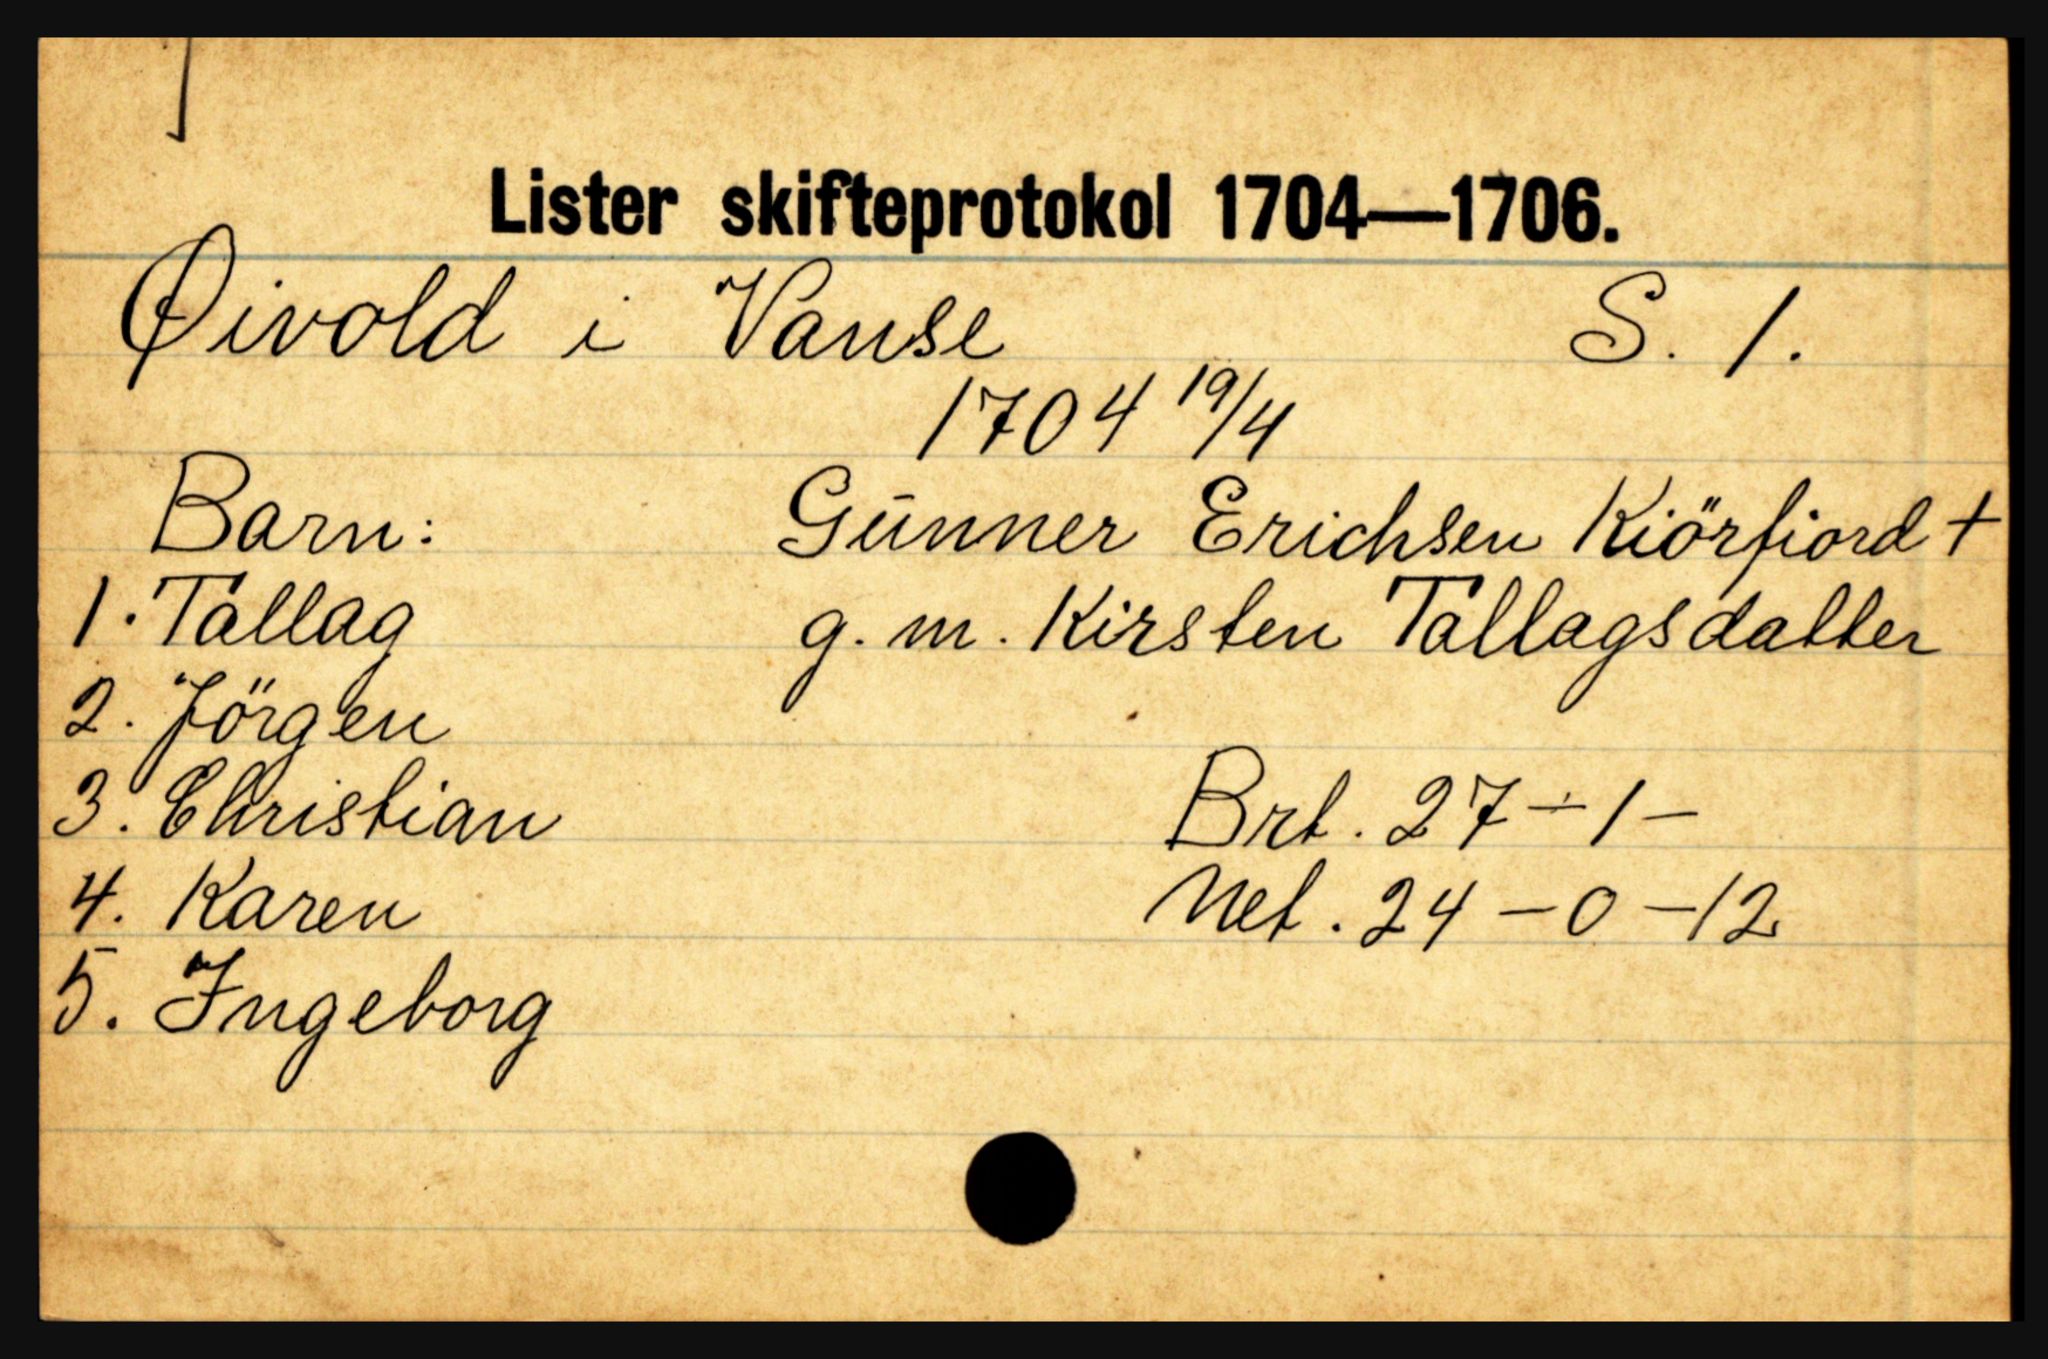 Lister skifteprotokol 1704—1706.
Øivold i Vanse S. 1.
1704 19/4
Barn: Gūnner Erichsen Kiörfiord +
1. Tallag g. m. Kirsten Tallagsdatter
2. Jörgen
3. Christian Brt. 27 – 1 –
4. Karen Net. 24 – 0 – 12
5. Ingeborg